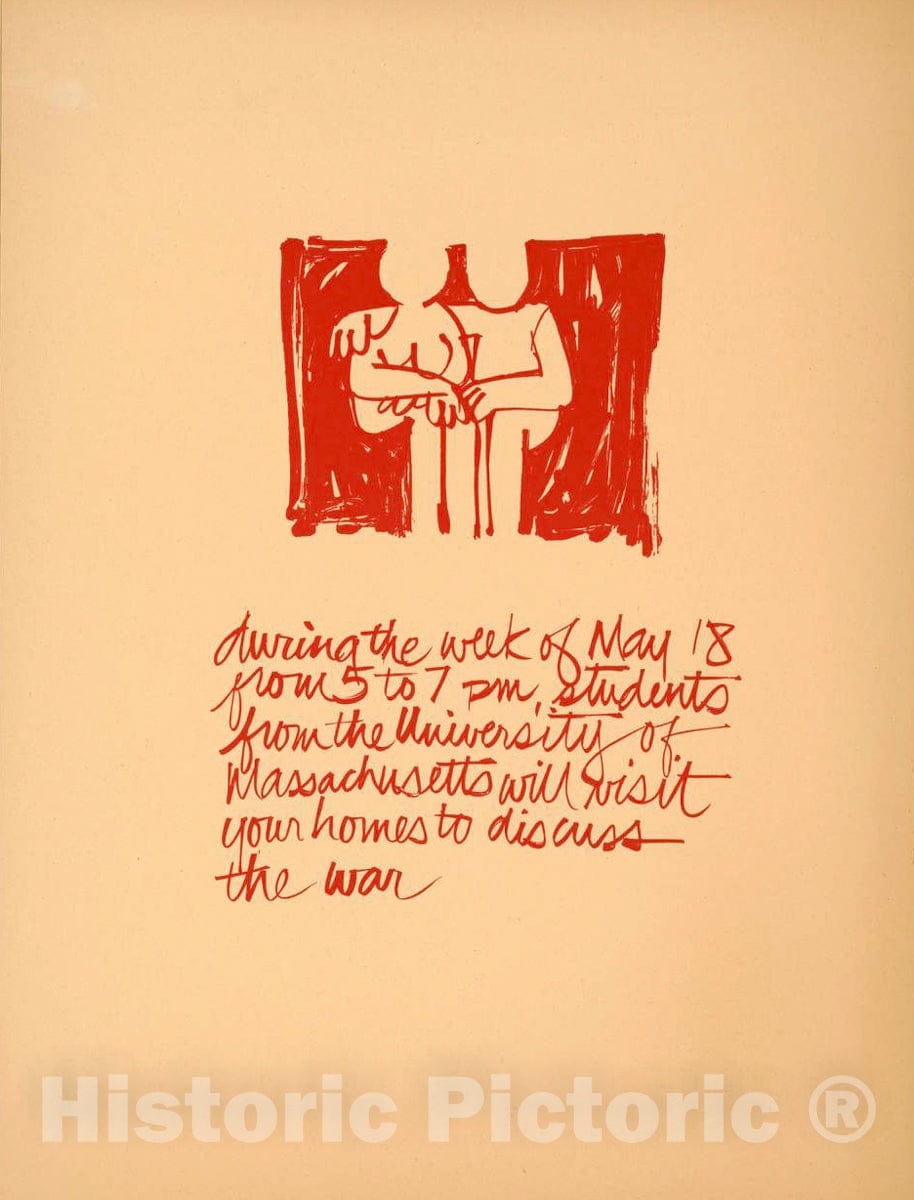 during the week of May 18
from 5 to 7 pm, students
from the University of
Massachusetts will visit
your homes to discuss
the war
Historic Pictoric ®